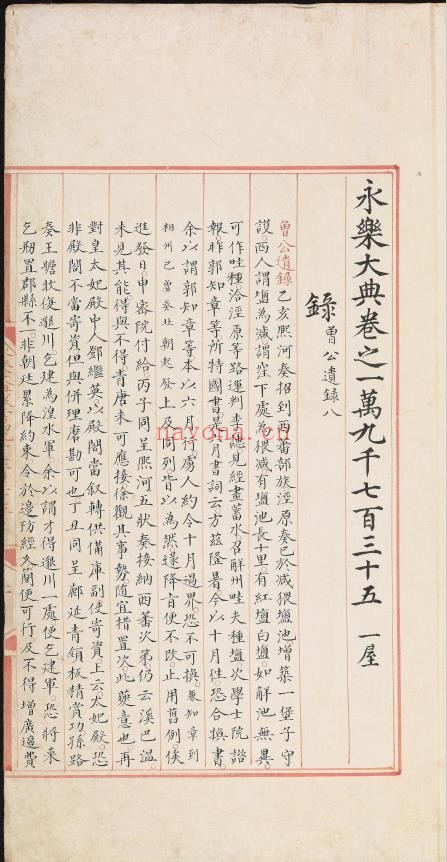 永樂大典卷之一萬九千七百三十五 一屋
錄 曾公遺錄八
曾公遺錄乙亥熙河奏招到西蕃部族涇原奏已於減猥鹽池增築一堡子守
護西人謂鹽為減謂窪下處為猥減有鹽池長十里有紅鹽白鹽如解池無異
可作畦種洽涇原等路運判李譓見經畫蓄水召解州畦夫種鹽次學士院諮
報昨郭知章等所持國書是六月書詞云方茲隆暑今以十月往恐合換書
余以謂郭知章等本以六月行虜人約令十月過界恐不可換兼知章到
相州已曾奏北朝起發上及同列皆以為然遂降旨便不改止用舊例俟
進發日申密院付給丙子同呈熙河五狀奏接納西蕃次第仍云溪巴溫
未見其能得與不得青唐未可應接徐觀其事勢隨宜措置次此夔意也再
對皇太妃殿中人鄧繼英以殿閣當敘轉供備庫副使寄資上云太妃殿恐
非殿閣不當寄資但與併理磨勘可也丁丑同呈鄜延青領板精賞功孫路
奏王贍收復邈川乞建為湟水軍余以謂才得邈川一處便乞建軍恐將來
乞剏置郡縣不一非朝廷累降約束令於邊防經久簡便可行及不得增廣邊費
nayona.cn